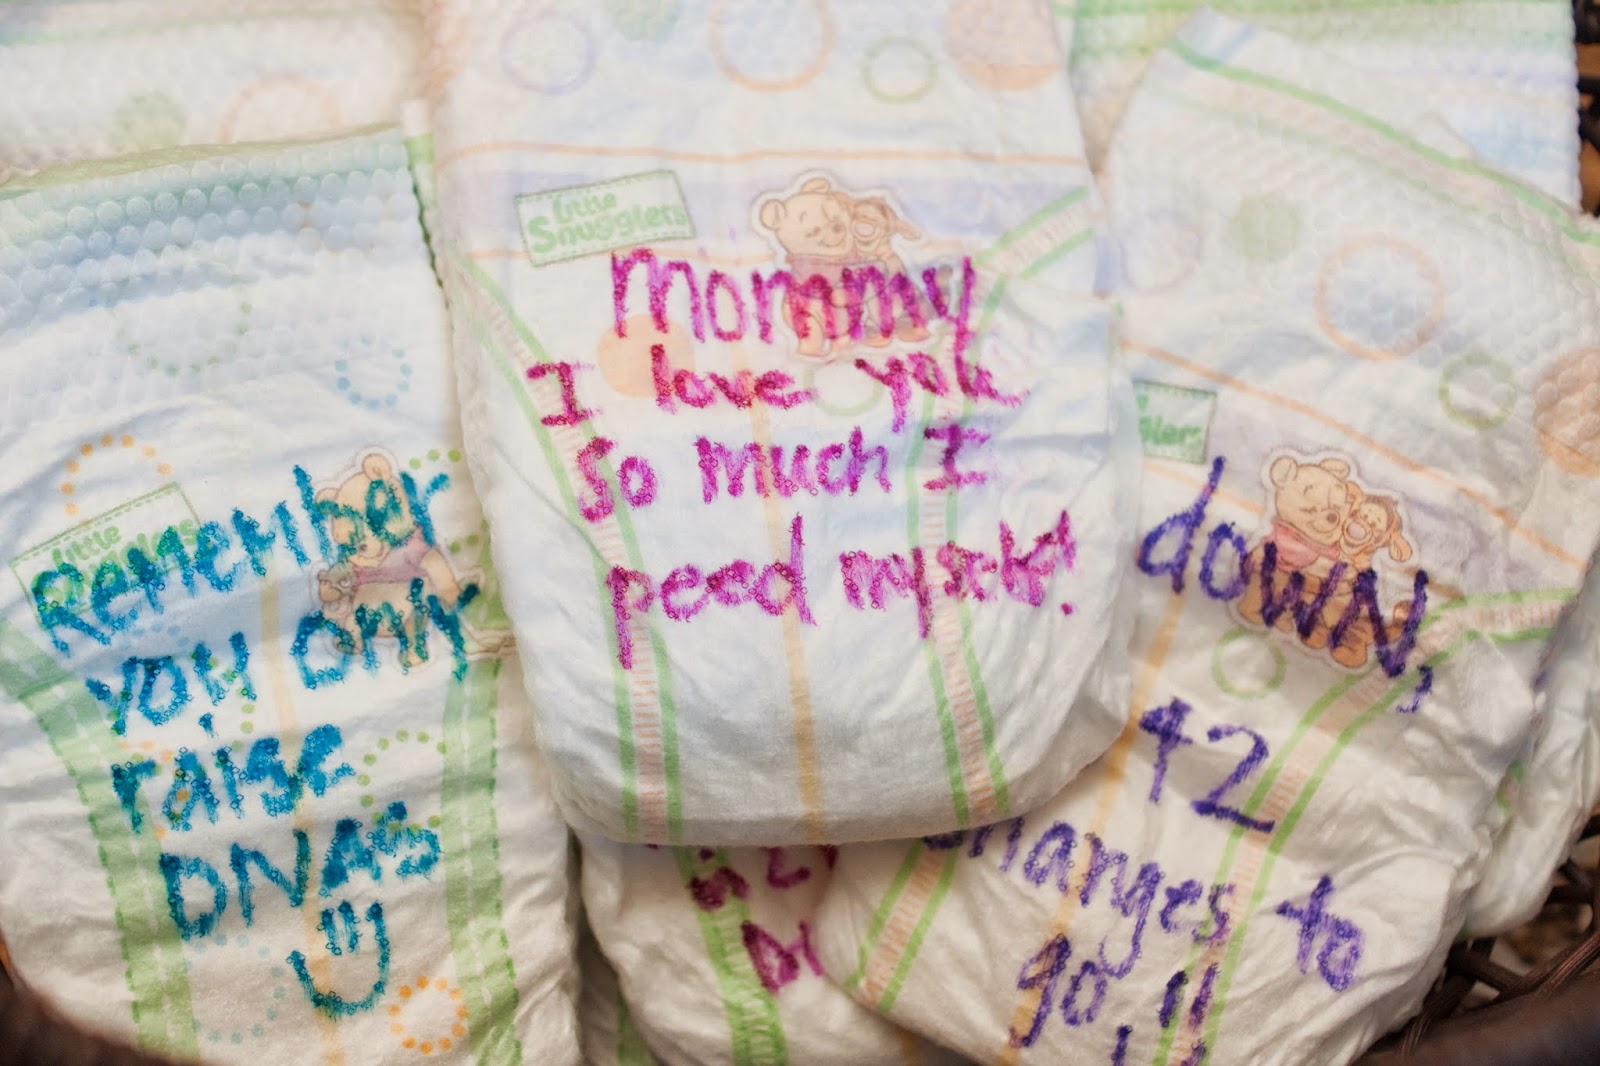 Little
Snugglers
Remember
you only
raise
DNAS
Little
Snugglers
Mommy
I love you
So much I
peed myself!
glers
down,
42
changes to
go!!